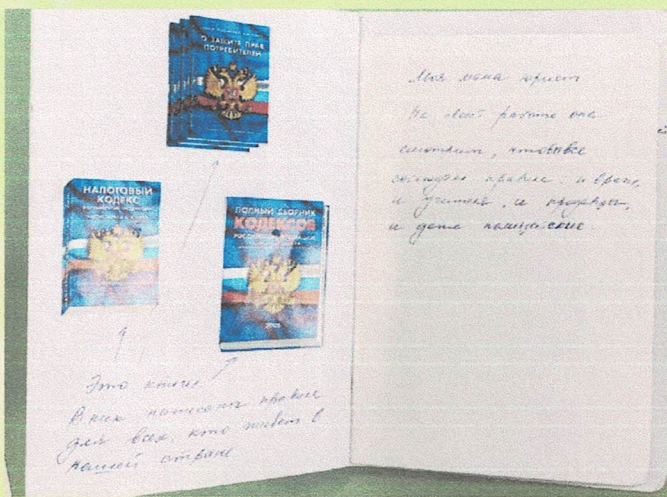 О ЗАЩИТЕ ПРАВ
ПОТРЕБИТЕЛЕЙ
НАЛОГОВЫЙ
КОДЕКС
ПОЛНЫЙ СБОРНИК
КОДЕКСОВ
РОССИЙСКОЙ ФЕДЕРАЦИИ
Это книги
В них написаны правила
для всех, кто живет в
нашей стране
Моя мама юрист
На своей работе она
смотрит, чтобы все
соблюдали правила и врачи,
и учителя, и продавцы,
и даже полицейские